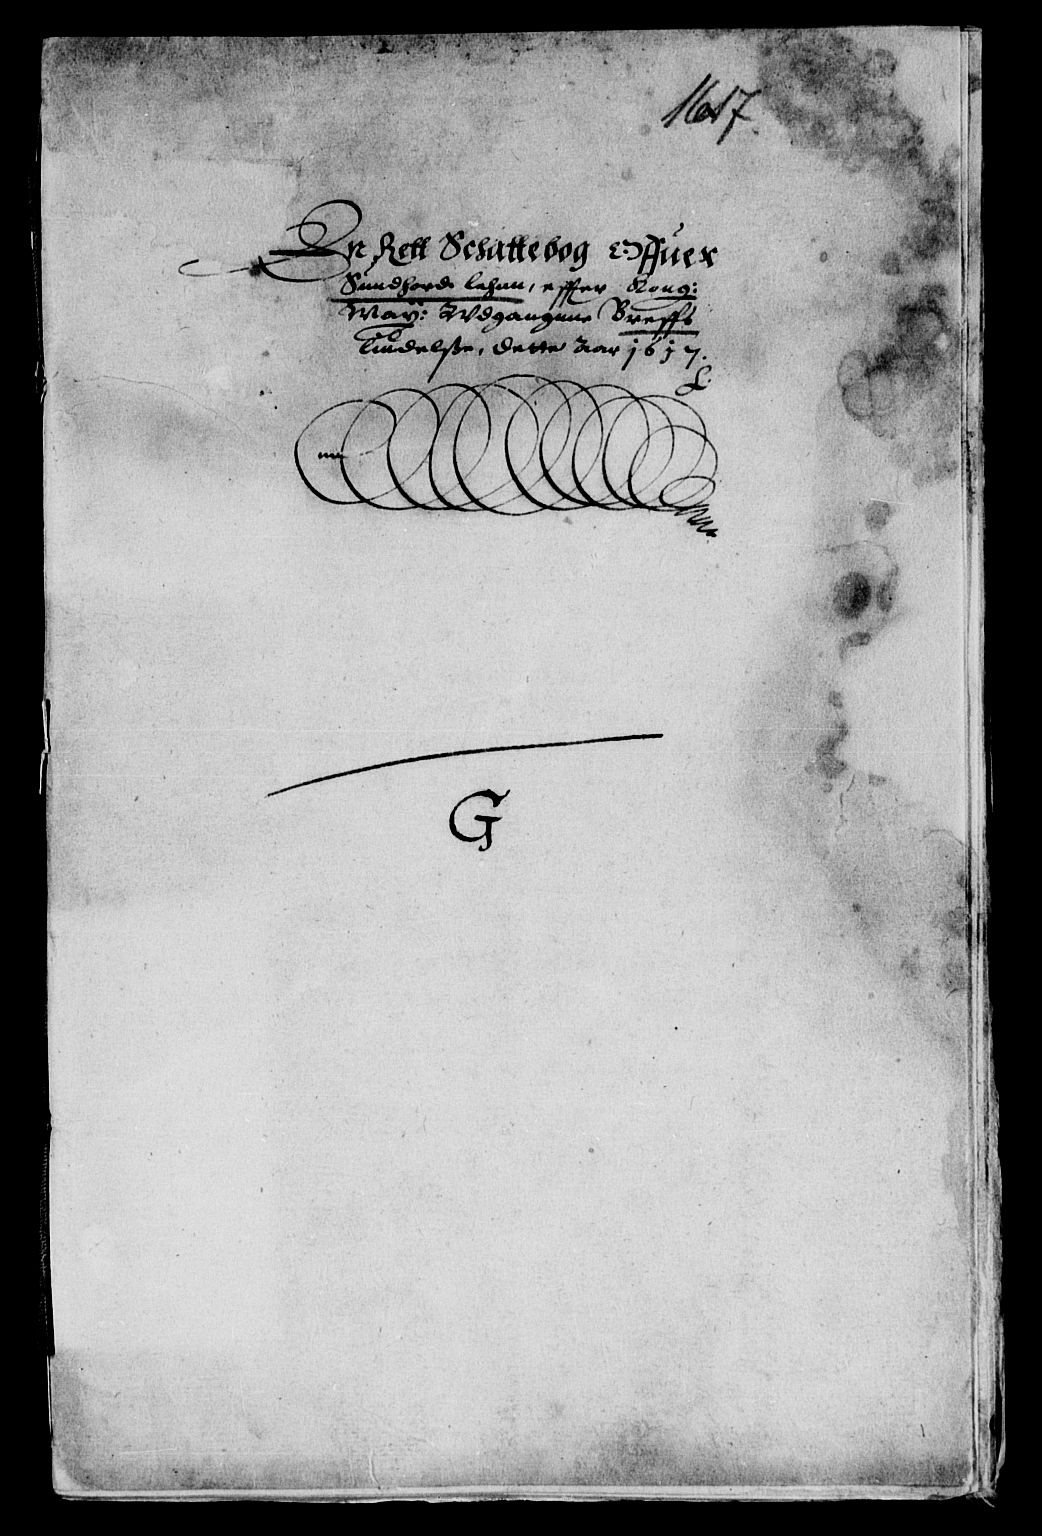 1617.
En Rett Schattebog Offuer
Sundhords lehnn, effter Kong:
May: Wdganngnne Breffs
liudelsße, dette Aar 1617.
G